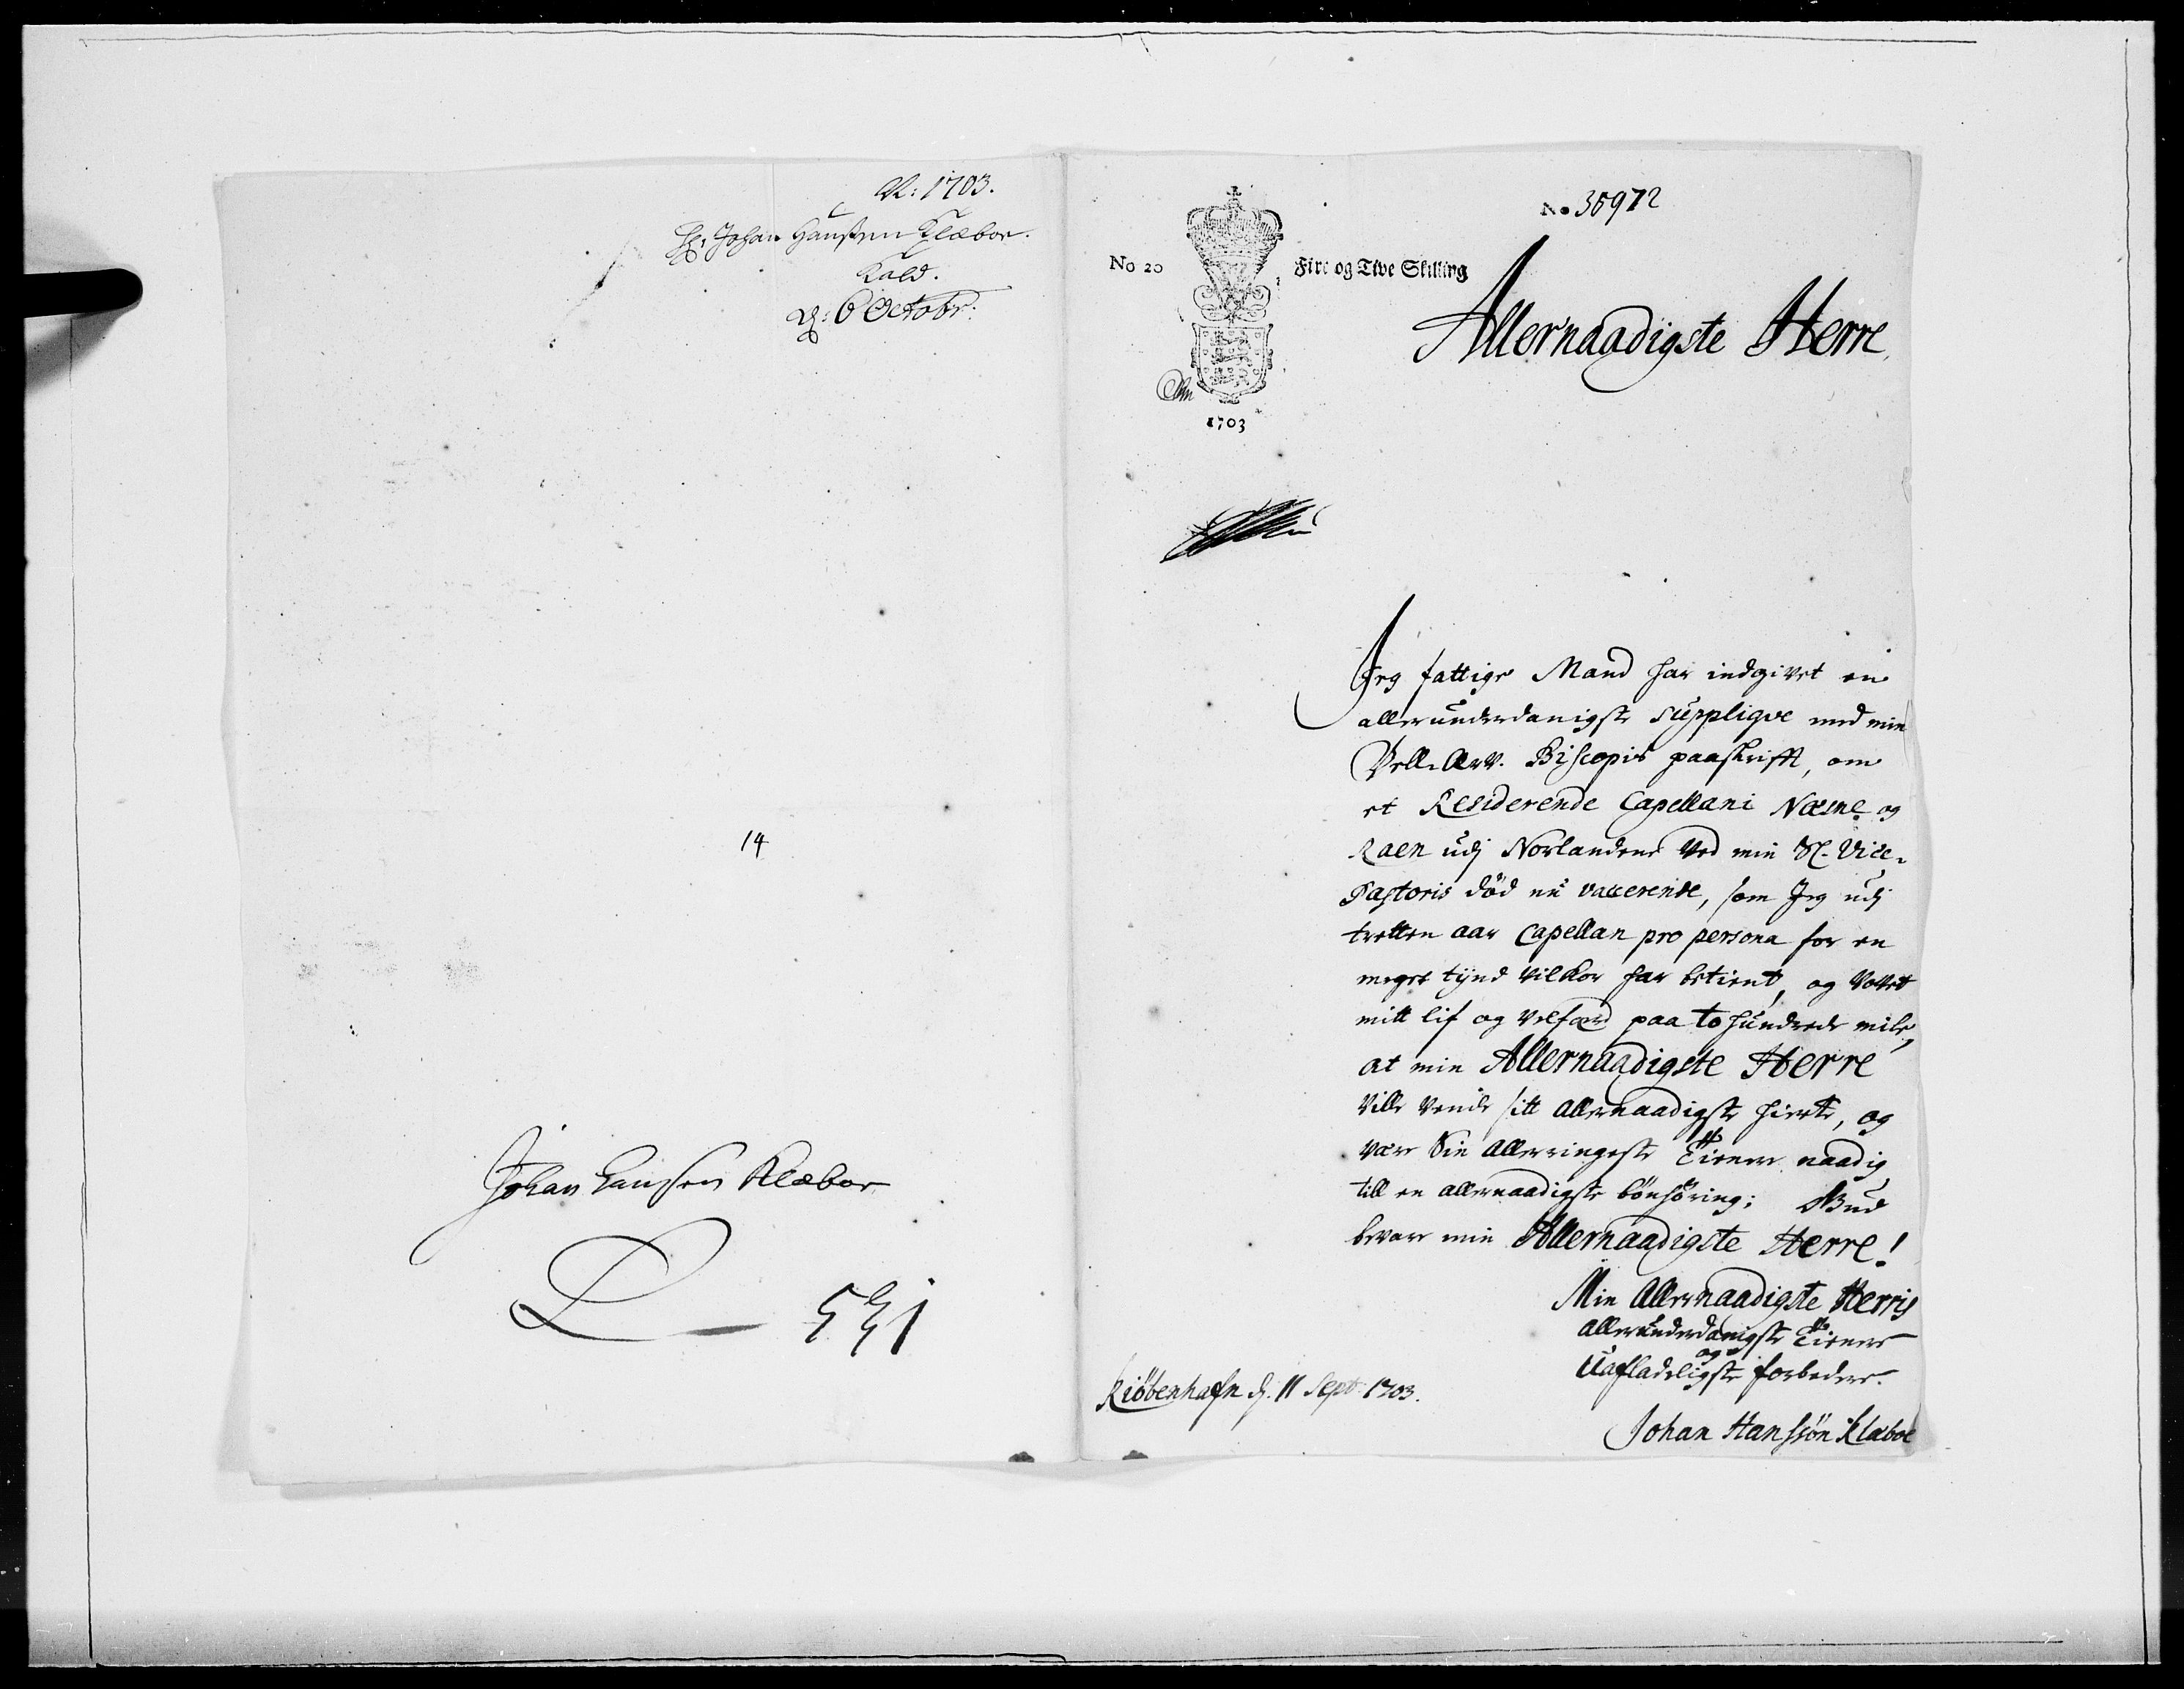 A: 1703.
Hr. Johan Hanssen Klæboe.
Kald.
d: 6 Octobr:
14
Johan Hansen Klæboe
L — 551
No 20
Fire og Tive Skilling
1703
No 36972
Allernaadigste Herre
Jeg fattige Mand har indgivet en
allerunderdanigste supplique med min
Vell. Ærv. Biscopis paaskrifft, om
et Residerende Capellani Næsne og
Raen udj Norlandene ved min Sl. Vice-
Pastoris død nu vaccerende, som Jeg udj
tretten aar Capellan pro persona for en
meget tynd vilkor har betient, og vovet
mitt lif og velfærd paa to hundrede mile,
at min Allernaadigste Herre
ville vende sitt allernaadigste hierte, og
være Sin allerringeste Tienere naadig
till en allernaadigste bønhøring; Gud
bevare min Allernaadigste Herre!
Min Allernaadigste Herris
allerunderdanigste Tienere
og
Uafladeligste forbedere.
Kiøbenhafn d. 11 Sept 1703.
Johan Hanssøn Klæboe